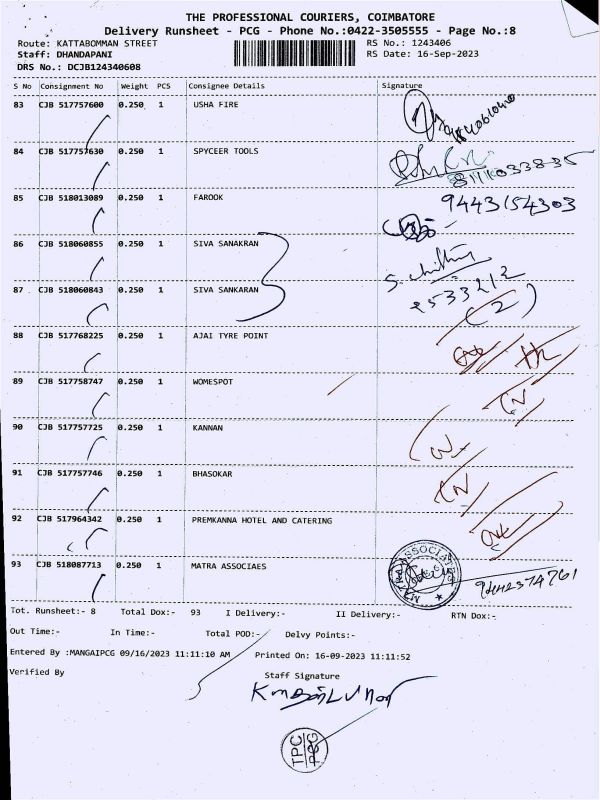 THE PROFESSIONAL COURIERS, COIMBATORE
Delivery Runsheet - PCG - Phone No.:0422-3505555 - Page No.:8
Route: KATTABOMMAN STREET RS No.: 1243406
Staff: DHANDAPANI RS Date: 16-Sep-2023
DRS No.: DCJB124340608
S No Consignment No Weight PCS Consignee Details Signature
83 CJB 517757600 0.250 1 USHA FIRE
84 CJB 517757630 0.250 1 SPYCEER TOOLS
8111033835
85 CJB 518013089 0.250 1 FAROOK 9443154303
86 CJB 518060855 0.250 1 SIVA SANAKRAN
87 CJB 518060843 0.250 1 SIVA SANKARAN
(2)
88 CJB 517768225 0.250 1 AJAI TYRE POINT
89 CJB 517758747 0.250 1 WOMESPOT
90 CJB 517757725 0.250 1 KANNAN
91 CJB 517757746 0.250 1 BHASOKAR
92 CJB 517964342 0.250 1 PREMKANNA HOTEL AND CATERING
93 CJB 518087713 0.250 1 MATRA ASSOCIAES
Tot. Runsheet:- 8 Total Dox:- 93 I Delivery:- II Delivery:- RTN Dox:-
Out Time:- In Time:- Total POD:- Delvy Points:-
Entered By :MANGAIPCG 09/16/2023 11:11:10 AM Printed On: 16-09-2023 11:11:52
Verified By Staff Signature
TPC
PCG